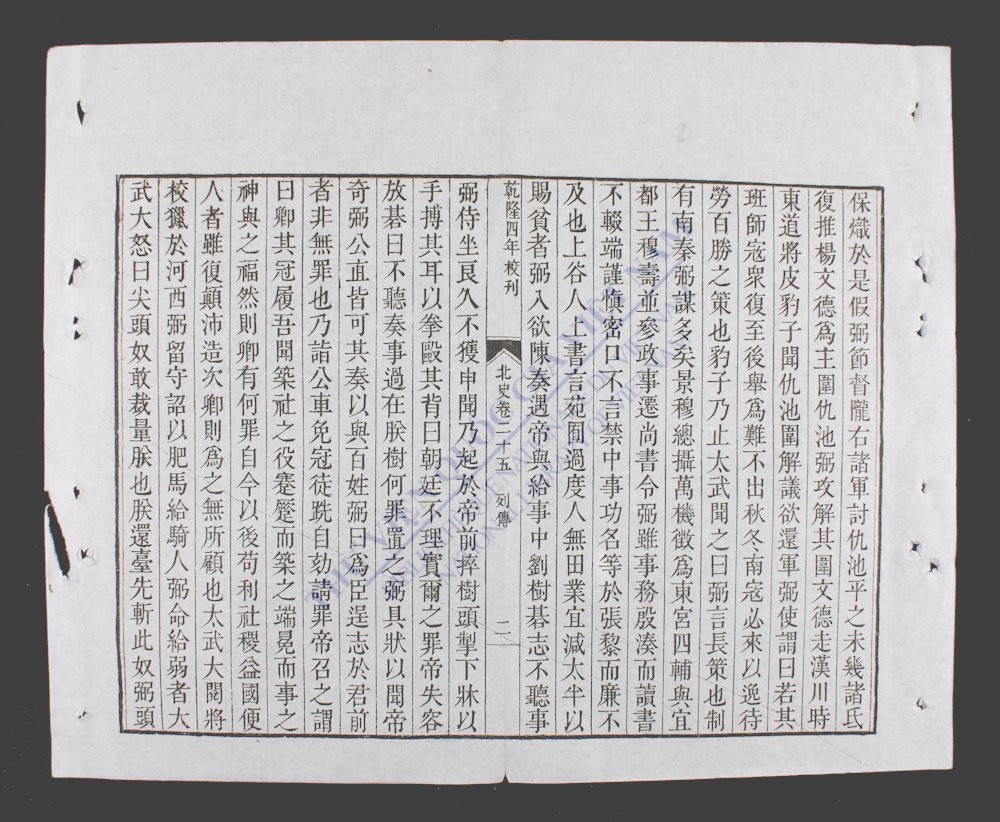 保熾於是假弼節督隴右諸軍討仇池平之未幾諸氐
復推楊文德爲主圍仇池弼攻解其圍文德走漢川時
東道將皮豹子聞仇池圍解議欲還軍弼使謂曰若其
班師寇衆復至後舉爲難不出秋冬南寇必來以逸待
勞百勝之策也豹子乃止太武聞之曰弼言長策也制
有南秦弼謀多矣景穆總攝萬機徵爲東宮四輔與宜
都王穆壽並參政事遷尚書令弼雖事務殷湊而讀書
不輟端謹愼密口不言禁中事功名等於張黎而廉不
及也上谷人上書言苑囿過度人無田業宜減太半以
賜貧者弼入欲陳奏遇帝與給事中劉樹棊志不聽事
乾隆四年校刊
北史卷二十五 列傳
二
弼侍坐良久不獲申聞乃起於帝前捽樹頭掣下牀以
手搏其耳以拳毆其背曰朝廷不理實爾之罪帝失容
放棊曰不聽奏事過在朕樹何罪置之弼具狀以聞帝
奇弼公直皆可其奏以與百姓弼曰爲臣逞志於君前
者非無罪也乃詣公車免冠徒跣自劾請罪帝召之謂
曰卿其冠履吾聞築社之役蹇蹷而築之端冕而事之
神與之福然則卿有何罪自今以後苟利社稷益國便
人者雖復顚沛造次卿則爲之無所顧也太武大閱將
校獵於河西弼留守詔以肥馬給騎人弼命給弱者大
武大怒曰尖頭奴敢裁量朕也朕還臺先斬此奴弼頭